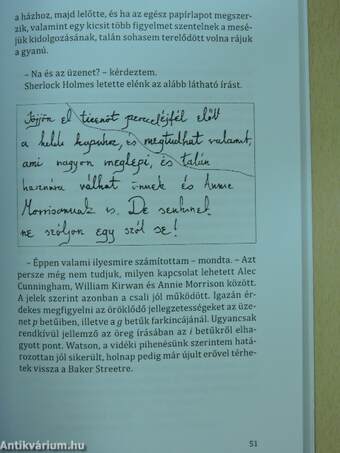 a házhoz, majd lelőtte, és ha az egész papírlapot megszer-
zik, valamint egy kicsit több figyelmet szentelnek a mesé-
jük kidolgozásának, talán sohasem terelődött volna rájuk
a gyanú.
– Na és az üzenet? – kérdeztem.
Sherlock Holmes letette elénk az alább látható írást.
Jöjjön el tizenöt perccel éjfél előtt
a keleti kapuhoz, és megtudhat valamit,
ami nagyon meglepi, és talán
hasznára válhat önnek és Annie
Morrisonnak is. De senkinek
ne szóljon egy szót se!
– Éppen valami ilyesmire számítottam – mondta. – Azt
persze még nem tudjuk, milyen kapcsolat lehetett Alec
Cunningham, William Kirwan és Annie Morrison között.
A jelek szerint azonban a csali jól működött. Igazán ér-
dekes megfigyelni az öröklődő jellegzetességeket az üze-
net p betűiben, illetve a g betűk farkincájánál. Ugyancsak
rendkívül jellemző az öreg írásában az i betűkről elha-
gyott pont. Watson, a vidéki pihenésünk szerintem hatá-
rozottan jól sikerült, holnap pedig már újult erővel térhe-
tek vissza a Baker Streetre.
51
Antikvárium.hu